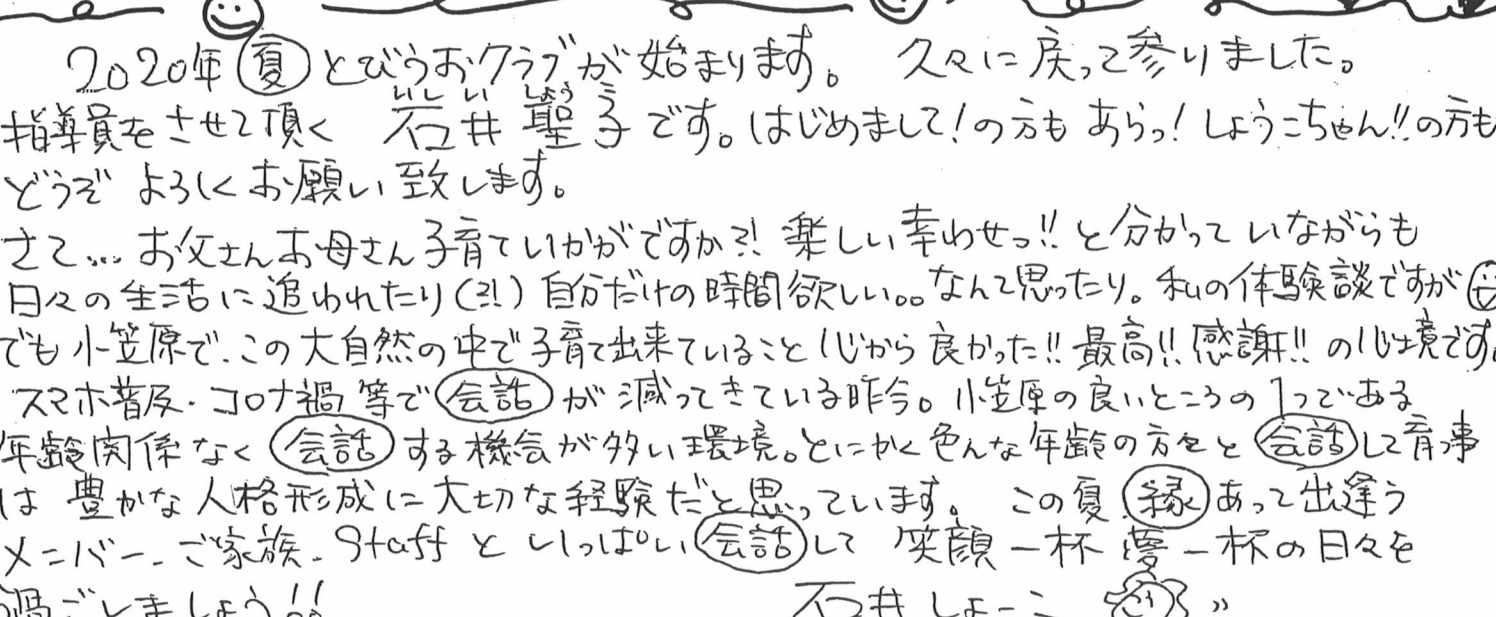 2020年 夏 とびうおクラブが始まります。 久々に戻って参りました。
指導員をさせて頂く 石井 聖子です。はじめまして！の方も あらっ！しょうこちゃん!!の方も
いしい しょうこ
どうぞ よろしくお願い致します。
さて… お父さんお母さん子育ていかがですか?! 楽しい幸わせっ!! と分かって いながらも
日々の生活に追われたり(?!) 自分だけの時間欲しい。。なんて思ったり。私の体験談ですが
でも小笠原で、この大自然の中で子育て出来ていること 心から良かった!! 最高!! 感謝!! の心境です。
スマホ普及・コロナ禍 等で 会話 が減ってきている昨今。小笠原の良いところの1つである
年齢関係なく 会話 する機会が多い環境。とにかく色んな年齢の方々と 会話 して育つ事
は 豊かな人格形成に大切な経験だと思っています。 この夏 縁 あって出逢う
メンバー、ご家族、Staffと いっぱい 会話 して 笑顔一杯 夢一杯の日々を
過ごしましょう!! 石井しょーこ